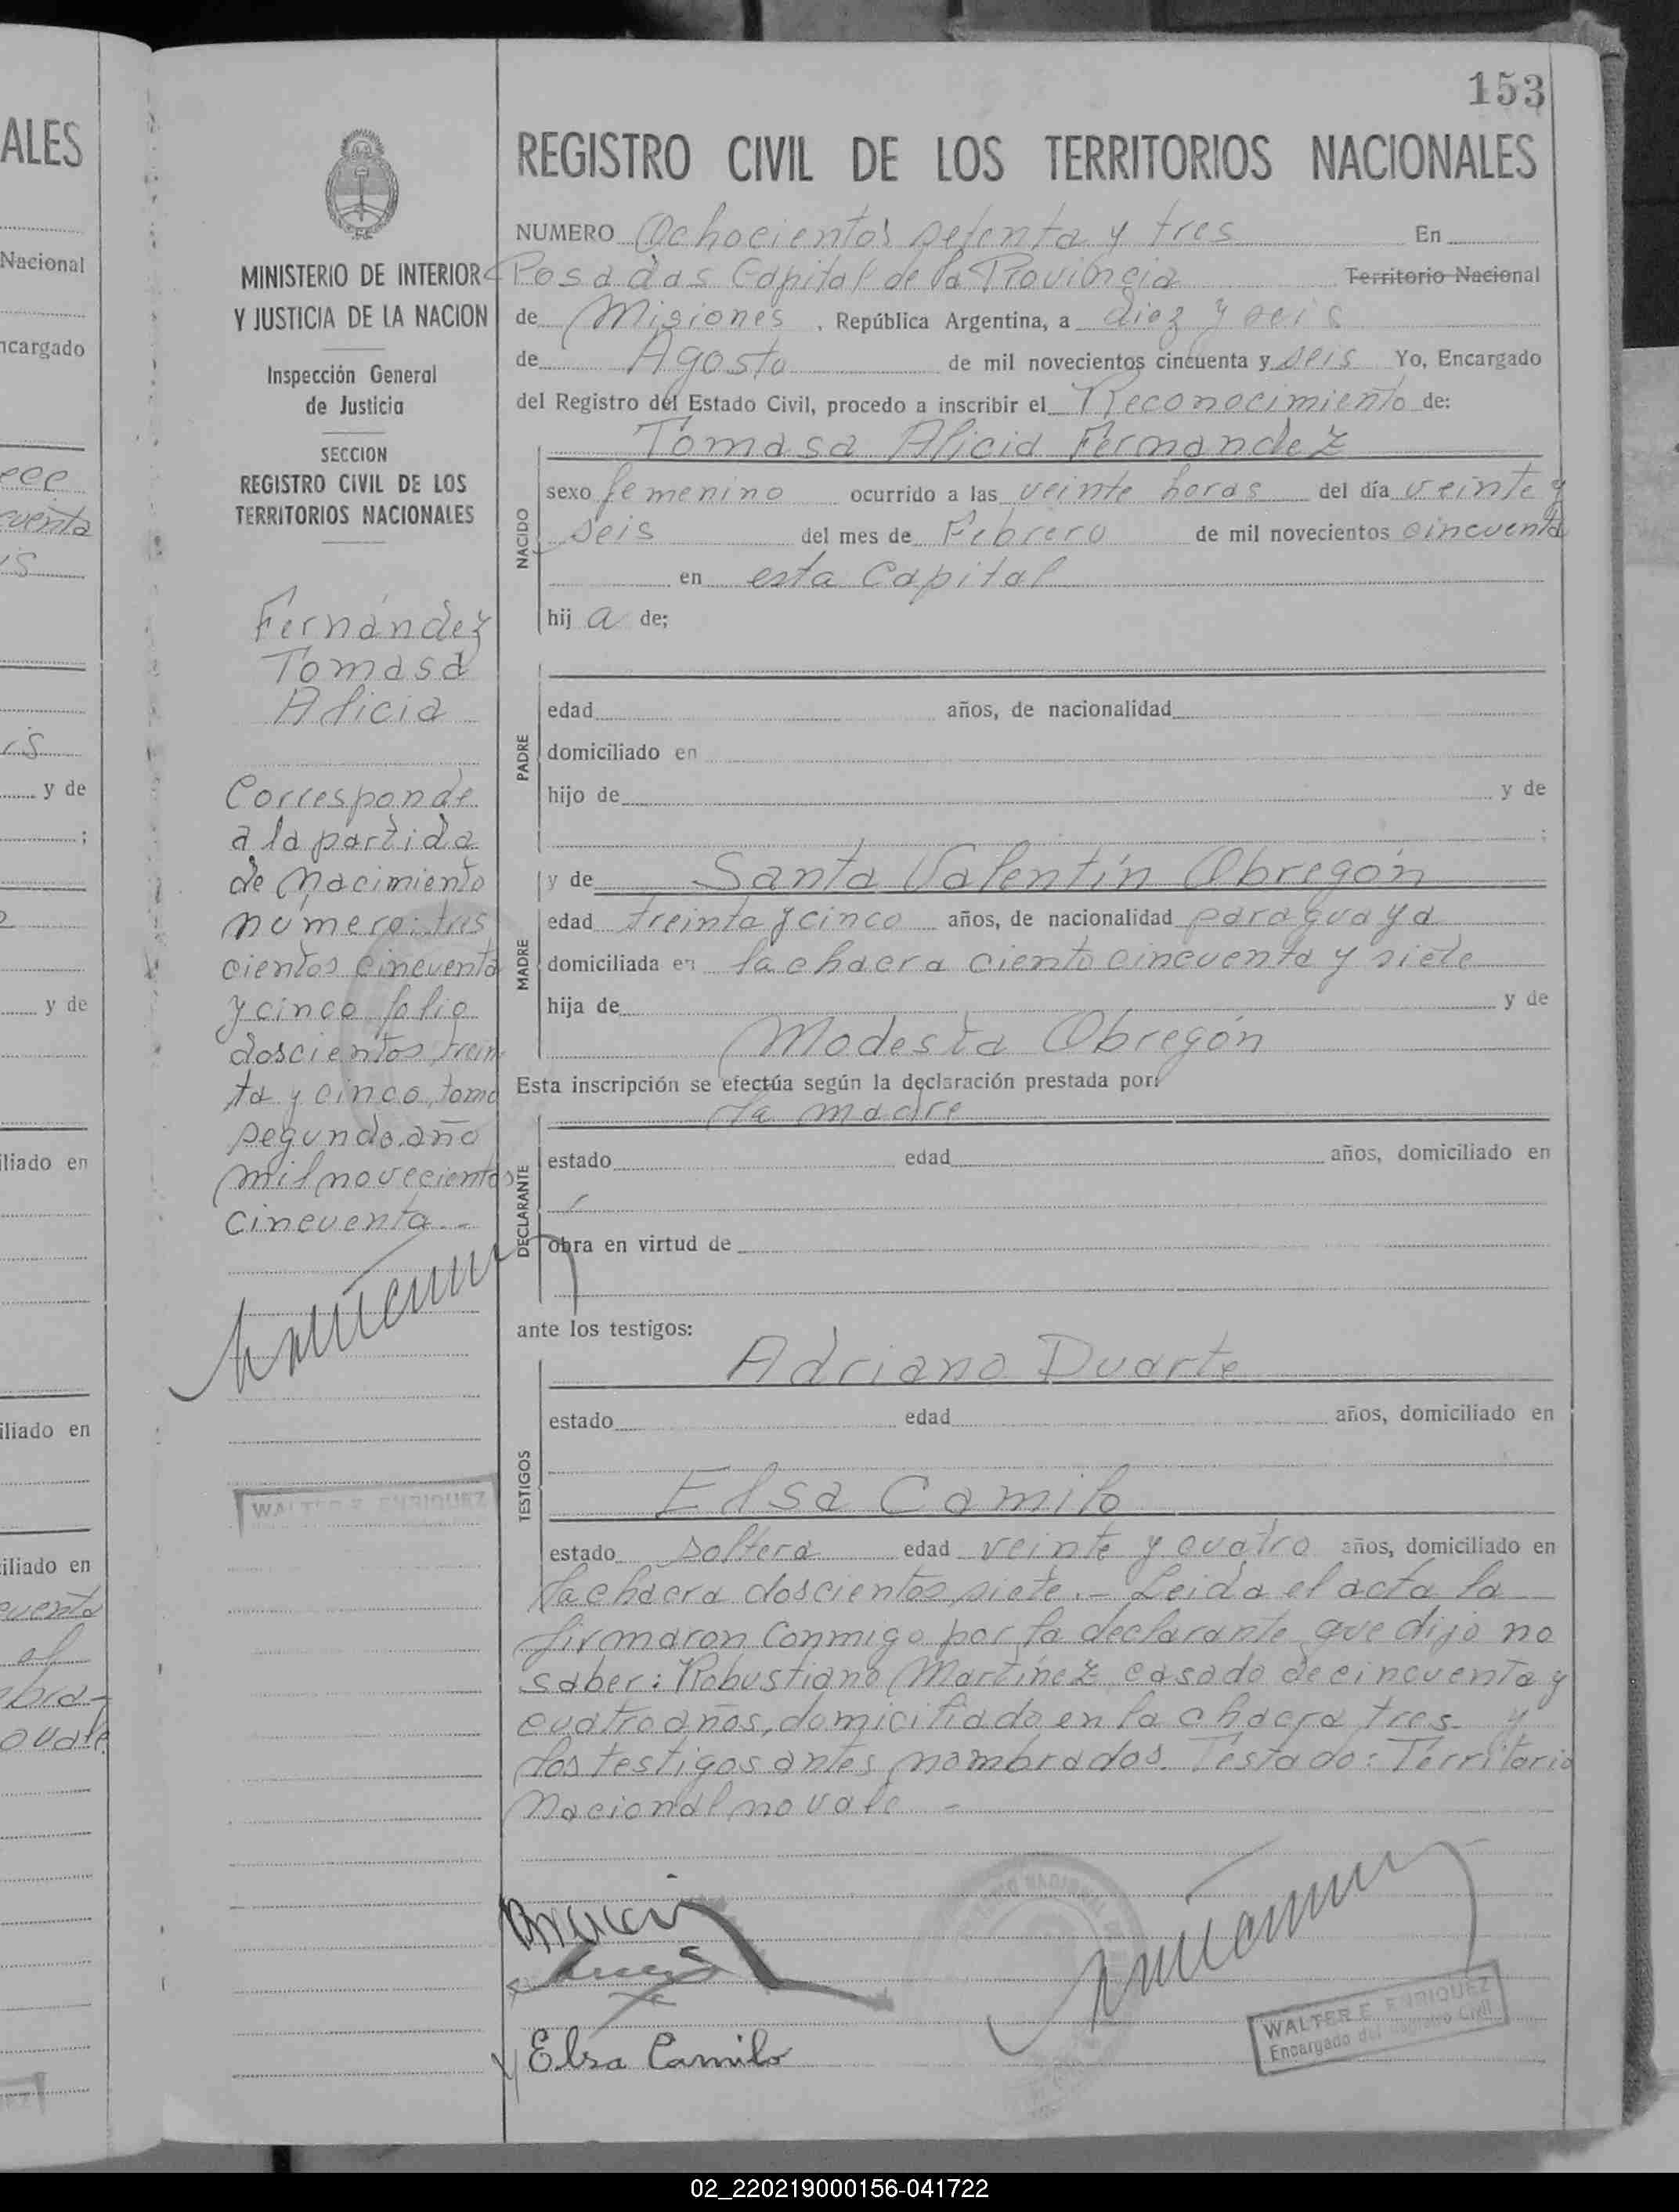 153
ALES
Nacional
ncargado
y de
y de
iliado en
iliado en
iliado en
MINISTERIO DE INTERIOR
Y JUSTICIA DE LA NACION
Inspección General
de Justicia
SECCION
REGISTRO CIVIL DE LOS
TERRITORIOS NACIONALES
Fernández
Tomasa
Alicia
Corresponde
a la partida
de nacimiento
número: tres
cientos cincuenta
y cinco folio
doscientos trein
ta y cinco, tomo
segundo, año
mil novecientos
cincuenta.-
WALTER E. ENRIQUEZ
REGISTRO CIVIL DE LOS TERRITORIOS NACIONALES
NUMERO Ochocientos setenta y tres En
Posadas Capital de la Provincia Territorio Nacional
de Misiones, República Argentina, a diez y seis
de Agosto de mil novecientos cincuenta y seis Yo, Encargado
del Registro del Estado Civil, procedo a inscribir el Reconocimiento de:
Tomasa Alicia Fernandez
NACIDO
sexo femenino ocurrido a las veinte horas del día veinte y
seis del mes de Febrero de mil novecientos cincuenta
en esta Capital
hij a de;
PADRE
edad años, de nacionalidad
domiciliado en
hijo de y de
;
y de Santa Valentín Obregón
MADRE
edad treinta y cinco años, de nacionalidad paraguaya
domiciliada en la chacra ciento cincuenta y siete
hija de y de
Modesta Obregón
Esta inscripción se efectúa según la declaración prestada por:
la madre
DECLARANTE
estado edad años, domiciliado en
obra en virtud de
ante los testigos:
Adriano Duarte
TESTIGOS
estado edad años, domiciliado en
Elsa Camilo
estado soltera edad veinte y cuatro años, domiciliado en
la chacra doscientos siete.- Leida el acta la
firmaron conmigo por la declarante que dijo no
saber: Robustiano Martínez casado de cincuenta y
cuatro años, domiciliado en la chacra tres y
los testigos antes nombrados. Testado: Territorio
Nacional, no vale -
Elsa Camilo
WALTER E. ENRIQUEZ
Encargado del Registro Civil
02_220219000156-041722